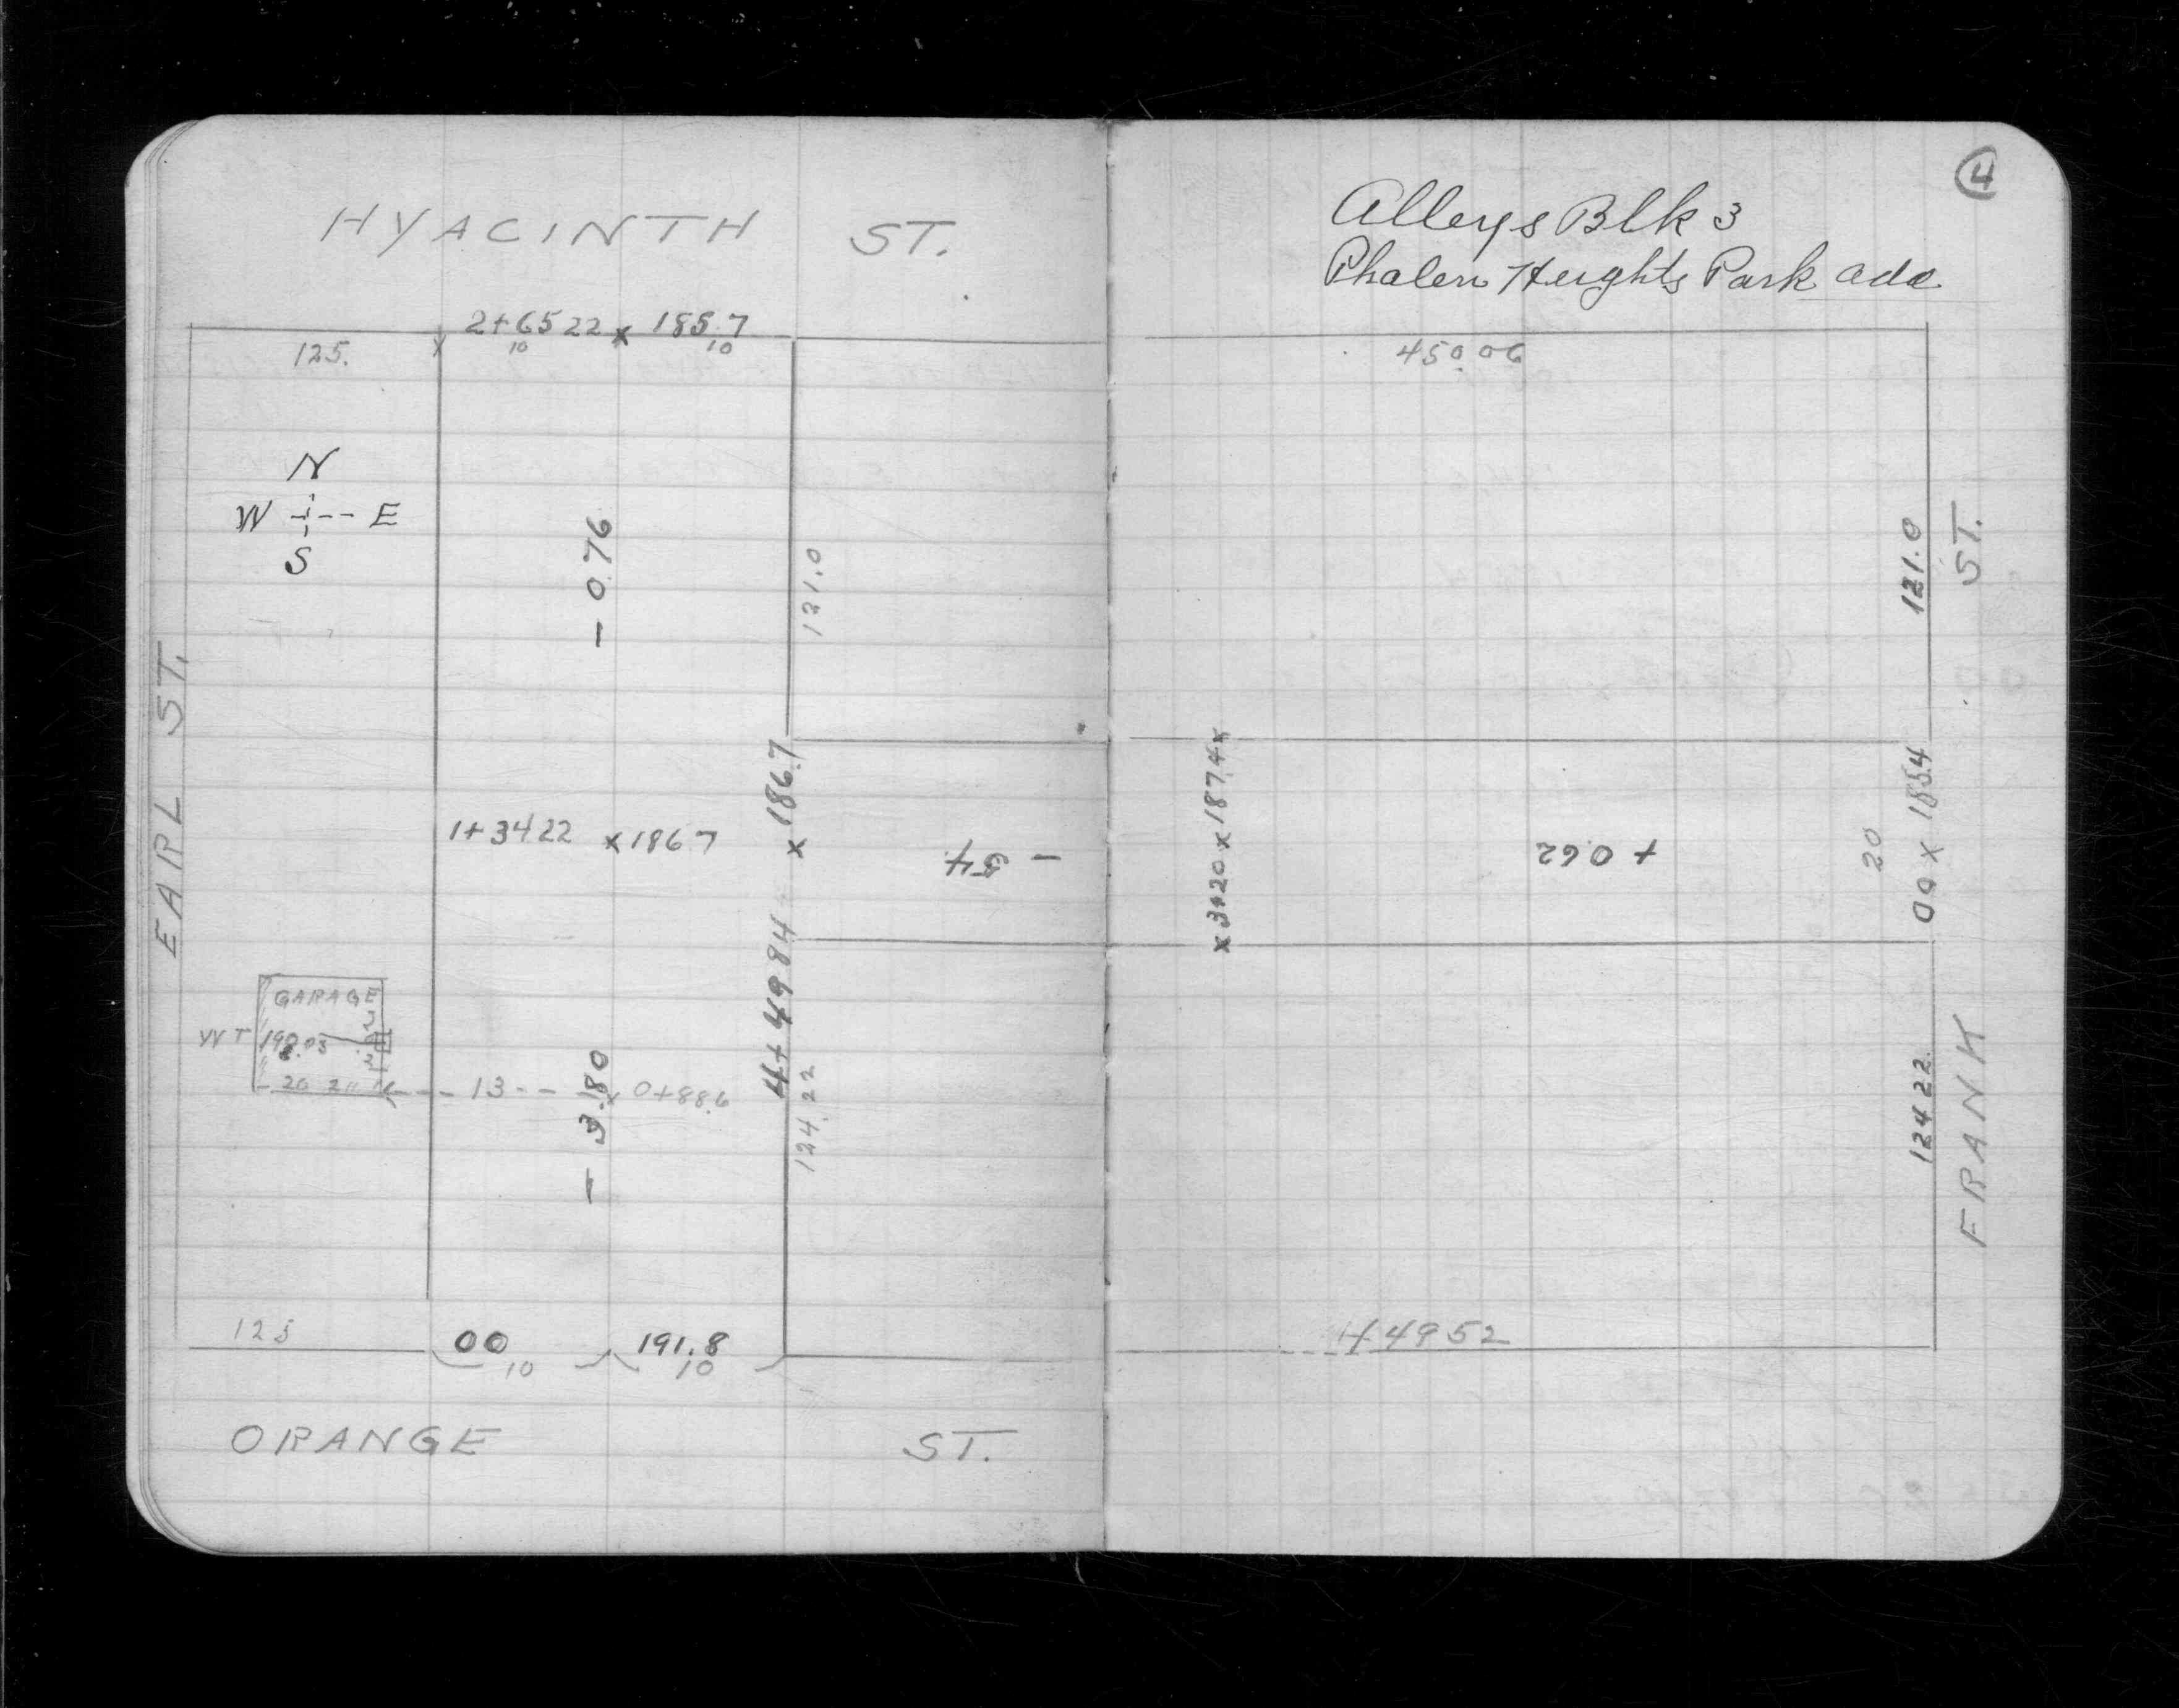 HYACINTH ST.
2+65 22 x 185.7
10 10
125.
N
W E
S
- 0.76
121.0
EARL ST.
1+34 22 x 186 7
x 186.7
- .54
4+49 84
GARAGE
WT 198.03
20
13 x 0+88.6
- 3.80
124.22
125
00 191.8
10 10
ORANGE ST.
4
Alleys Blk 3
Phalen Heights Park add
450.06
121.0
ST.
x 3+20 x 187.4 x
+ 0.62
20
00 x 185.4
124 22
FRANK
449 52